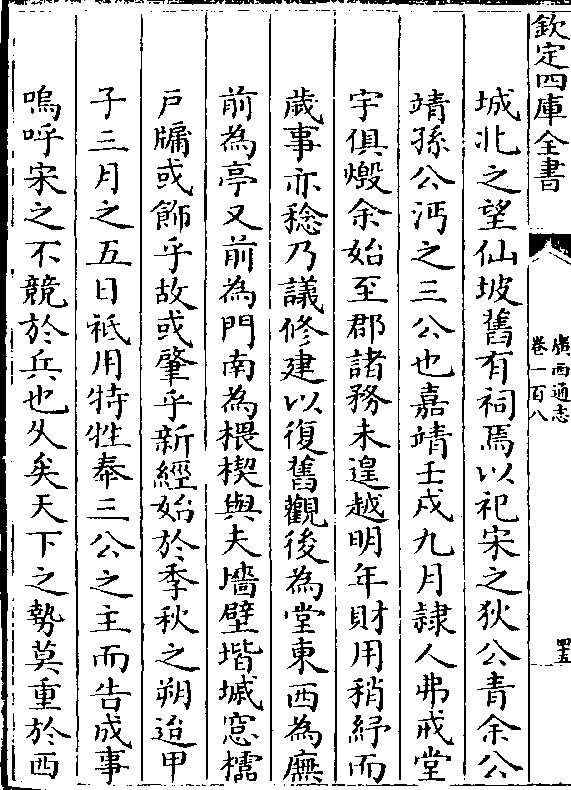 欽定四庫全書
廣西通志
卷一百八
四五
城北之望仙坡舊有祠焉以祀宋之狄公青余公
靖孫公沔之三公也嘉靖壬戌九月隷人弗戒堂
宇俱燬余始至郡諸務未遑越明年財用稍紓而
歲事亦稔乃議修建以復舊觀後為堂東西為廡
前為亭又前為門南為椳楔與夫墻壁堦墄窓櫺
戸牗或飾乎故或肇乎新經始於季秋之朔迨甲
子三月之五日祗用特牲奉三公之主而告成事
嗚呼宋之不競於兵也乆矣天下之勢莫重於西